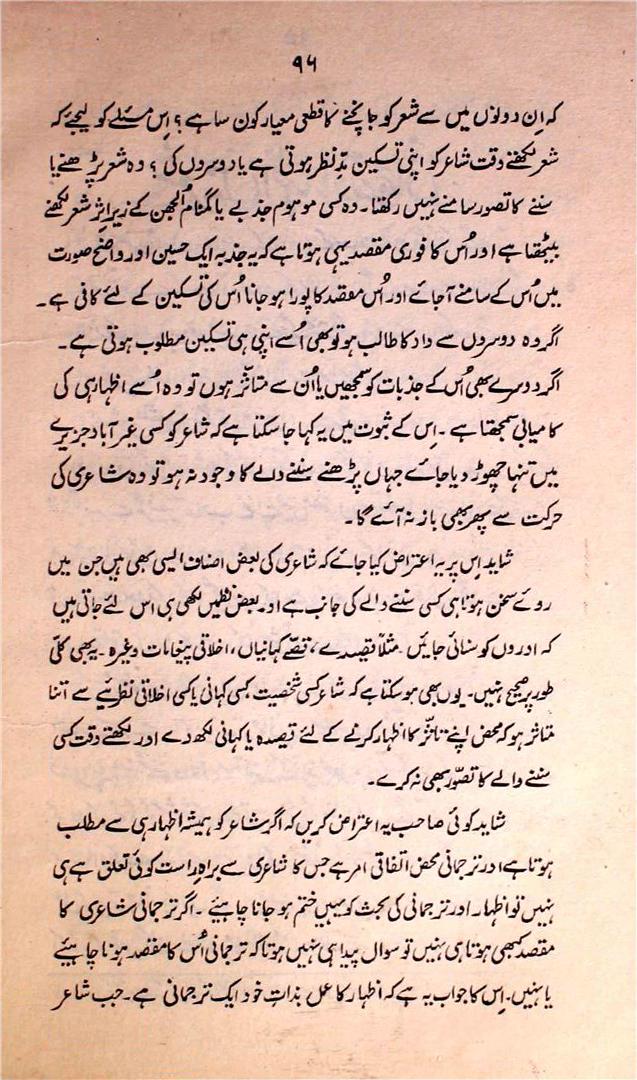 ۹۶
کہ اِن دونوں میں سے شعر کو جانچنے کا قطعی معیار کون سا ہے؟ اِس مسئلے کو لیجئے کہ
شعر لکھتے وقت شاعر کو اپنی تسکین مدِّ نظر ہوتی ہے یا دوسروں کی؟ وہ شعر پڑھنے یا
سننے کا تصور سامنے نہیں رکھتا۔ وہ کسی موہوم جذبے یا گمنام اُلجھن کے زیرِ اثر شعر لکھنے
بیٹھتا ہے اور اُس کا فوری مقصد یہی ہوتا ہے کہ یہ جذبہ ایک حسین اور واضح صورت
میں اُس کے سامنے آجائے اور اُس مقصد کا پورا ہو جانا اُس کی تسکین کے لئے کافی ہے۔
اگر وہ دوسروں سے داد کا طالب ہو تو بھی اُسے اپنی ہی تسکین مطلوب ہوتی ہے۔
اگر دوسرے بھی اُس کے جذبات کو سمجھیں یا اُن سے متاثر ہوں تو وہ اُسے اظہار ہی کی
کامیابی سمجھتا ہے۔ اِس کے ثبوت میں یہ کہا جا سکتا ہے کہ شاعر کو کسی غیر آباد جزیرے
میں تنہا چھوڑ دیا جائے جہاں پڑھنے سننے والے کا وجود نہ ہو تو وہ شاعری کی
حرکت سے پھر بھی باز نہ آئے گا۔
شاید اِس پر یہ اعتراض کیا جائے کہ شاعری کی بعض اصناف ایسی بھی ہیں جن میں
روئے سخن ہوتا ہی کسی سننے والے کی جانب ہے اور بعض نظمیں لکھی ہی اس لئے جاتی ہیں
کہ اوروں کو سنائی جائیں۔ مثلاً قصیدے، قصّے کہانیاں، اخلاقی پیغامات وغیرہ۔ یہ بھی کلّی
طور پر صحیح نہیں۔ یوں بھی ہو سکتا ہے کہ شاعر کسی شخصیت، کسی کہانی یا کسی اخلاقی نظریئے سے اتنا
متاثر ہو کہ محض اپنے تاثّر کا اظہار کرنے کے لئے قصیدہ یا کہانی لکھ دے اور لکھتے وقت کسی
سننے والے کا تصوّر بھی نہ کرے۔
شاید کوئی صاحب یہ اعتراض کریں کہ اگر شاعر کو ہمیشہ اظہار ہی سے مطلب
ہوتا ہے اور ترجمانی محض اتفاقی امر ہے جس کا شاعری سے براہِ راست کوئی تعلق ہے ہی
نہیں تو اظہار اور ترجمانی کی بحث کو یہیں ختم ہو جانا چاہیئے۔ اگر ترجمانی شاعری کا
مقصد کبھی ہوتا ہی نہیں تو سوال پیدا ہی نہیں ہوتا کہ ترجمانی اُس کا مقصد ہونا چاہیئے
یا نہیں۔ اِس کا جواب یہ ہے کہ اظہار کا عمل بذاتِ خود ایک ترجمانی ہے۔ جب شاعر